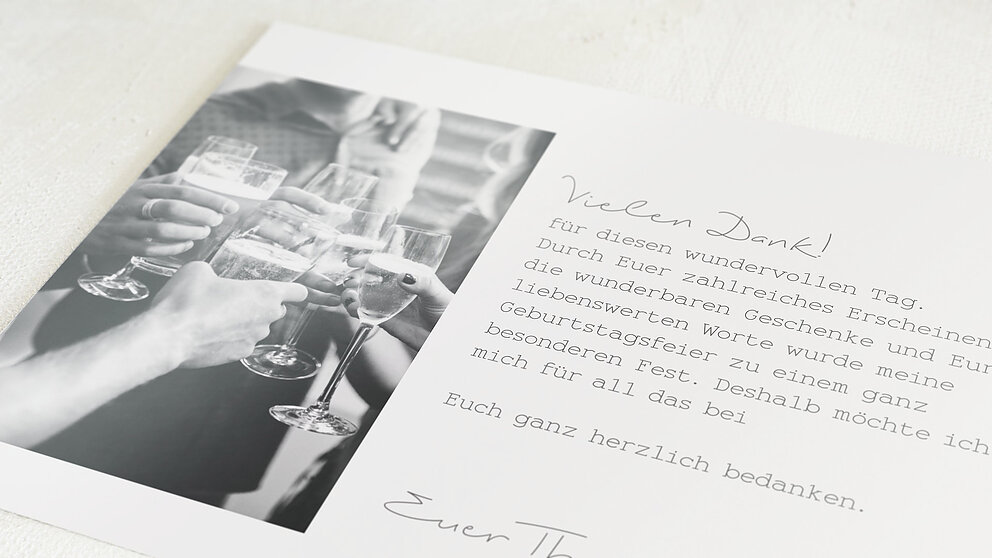 Vielen Dank!
für diesen wundervollen Tag.
Durch Euer zahlreiches Erscheinen
die wunderbaren Geschenke und Eur
liebenswerten Worte wurde meine
Geburtstagsfeier zu einem ganz
besonderen Fest. Deshalb möchte ich
mich für all das bei
Euch ganz herzlich bedanken.
Euer Th